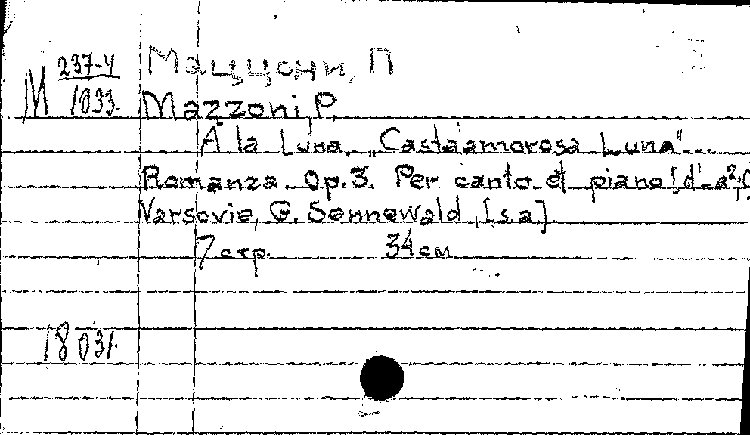 Маццони, П
М 237-4/1033
Mazzoni, P.
A la Luna. „Casta amorosa Luna"...
Romanza. Op. 3. Per canto et piano [d'-a²].
Varsovie, G. Sennewald, [s.a].
7 стр. 34 см
18031